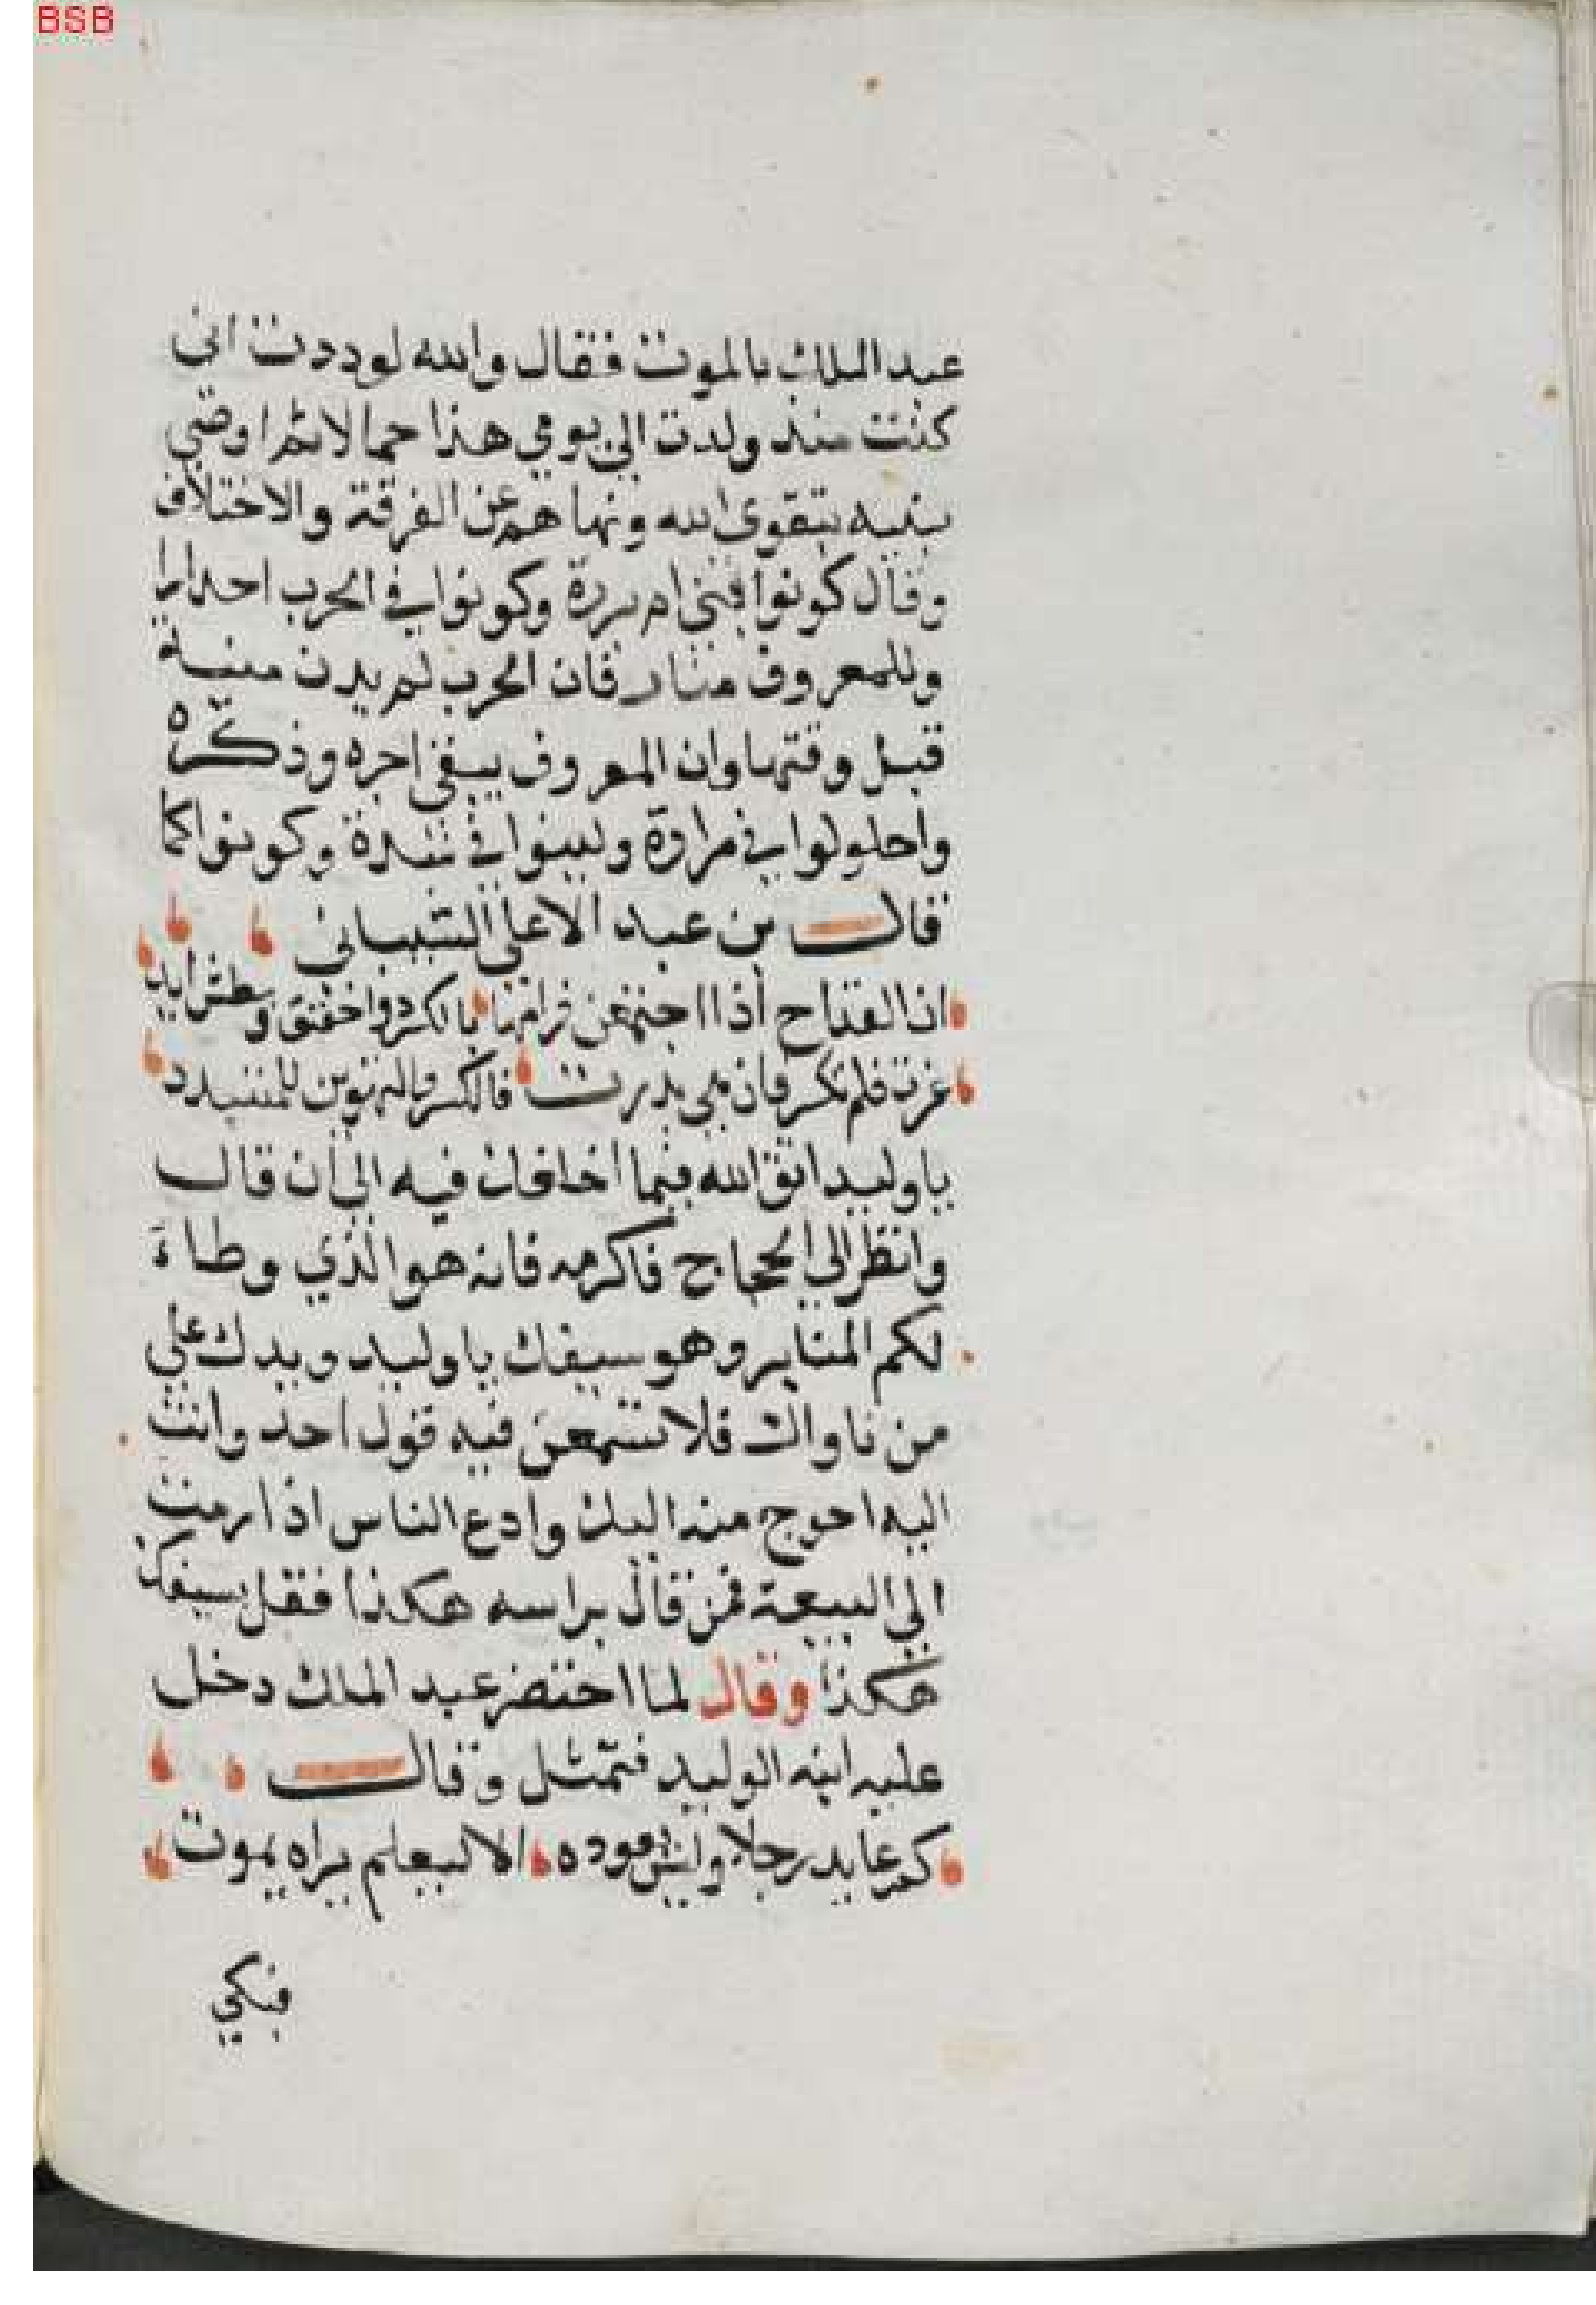 BSB
عبد الملك بالموت فقال والله لوددت انى
كنت منذ ولدت الى يومي هذا حمالا ثم اوصي
بنيه بتقوى الله ونهاهم عن الفرقة والاختلاف
وقال كونوا بني ام بررة وكونوا في الحرب احرارا
وللمعروف منار فان الحرب لم يدن منية
قبل وقتها وان المعروف يبقي اجره وذكره
واحلولوا في مرارة ولينوا في شدة وكونوا كما
قال بن عبد الاعلى الشيباني
ان القداح اذا اجتمعن فرامها بالكسر ذو حنق وبطش ايد
عزت فلم تكسر وان هي بددت فالكسر والتهوين للمتبدد
يا وليد اتق الله فيما اخلفك فيه الى ان قال
وانظر الى الحجاج فاكرمه فانه هو الذي وطاء
لكم المنابر وهو سيفك يا وليد ويدك على
من ناواك فلا تسمعن فيه قول احد وانت
اليه احوج منه اليك وادع الناس اذا رمت
الى البيعة فمن قال براسه هكذا فقل بسيفك
هكذا وقال لما احتضر عبد الملك دخل
عليه ابنه الوليد فتمثل وقال
كم عايد رجلا وليس يعوده الا ليعلم يراه يموت
فبكي